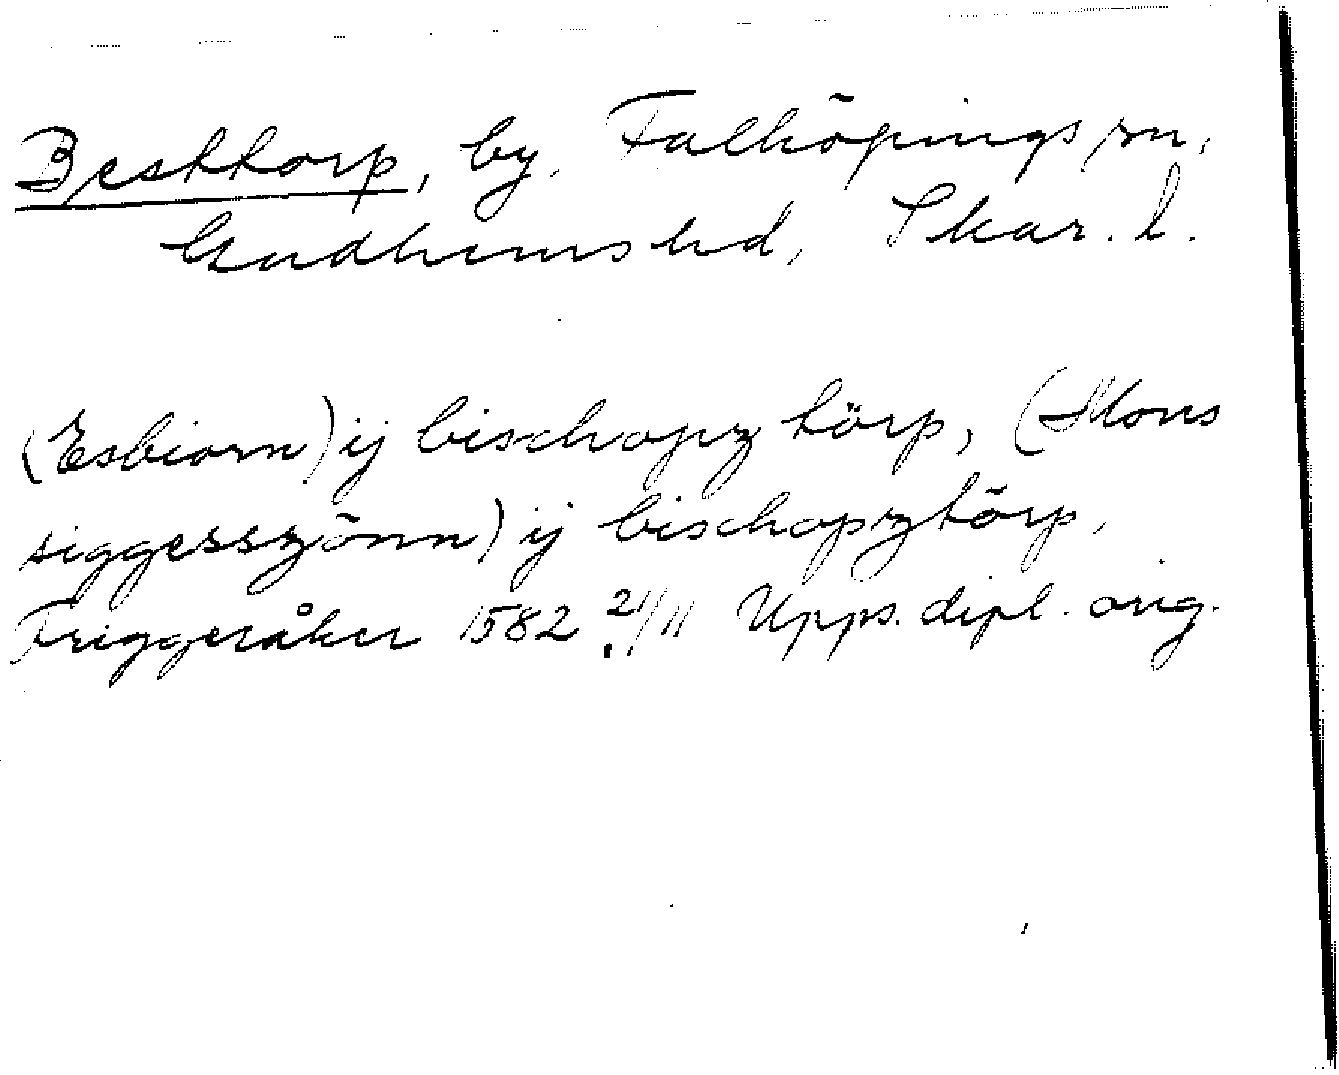 Bestorp, by, Falköpings sn,
Gudhems hd, Skar. l.
(Esbiorn) ij bischopz törp, (Mons
siggesszönn) ij bischopztörp,
Friggeråker 1582 21/11 Upps. dipl. orig.